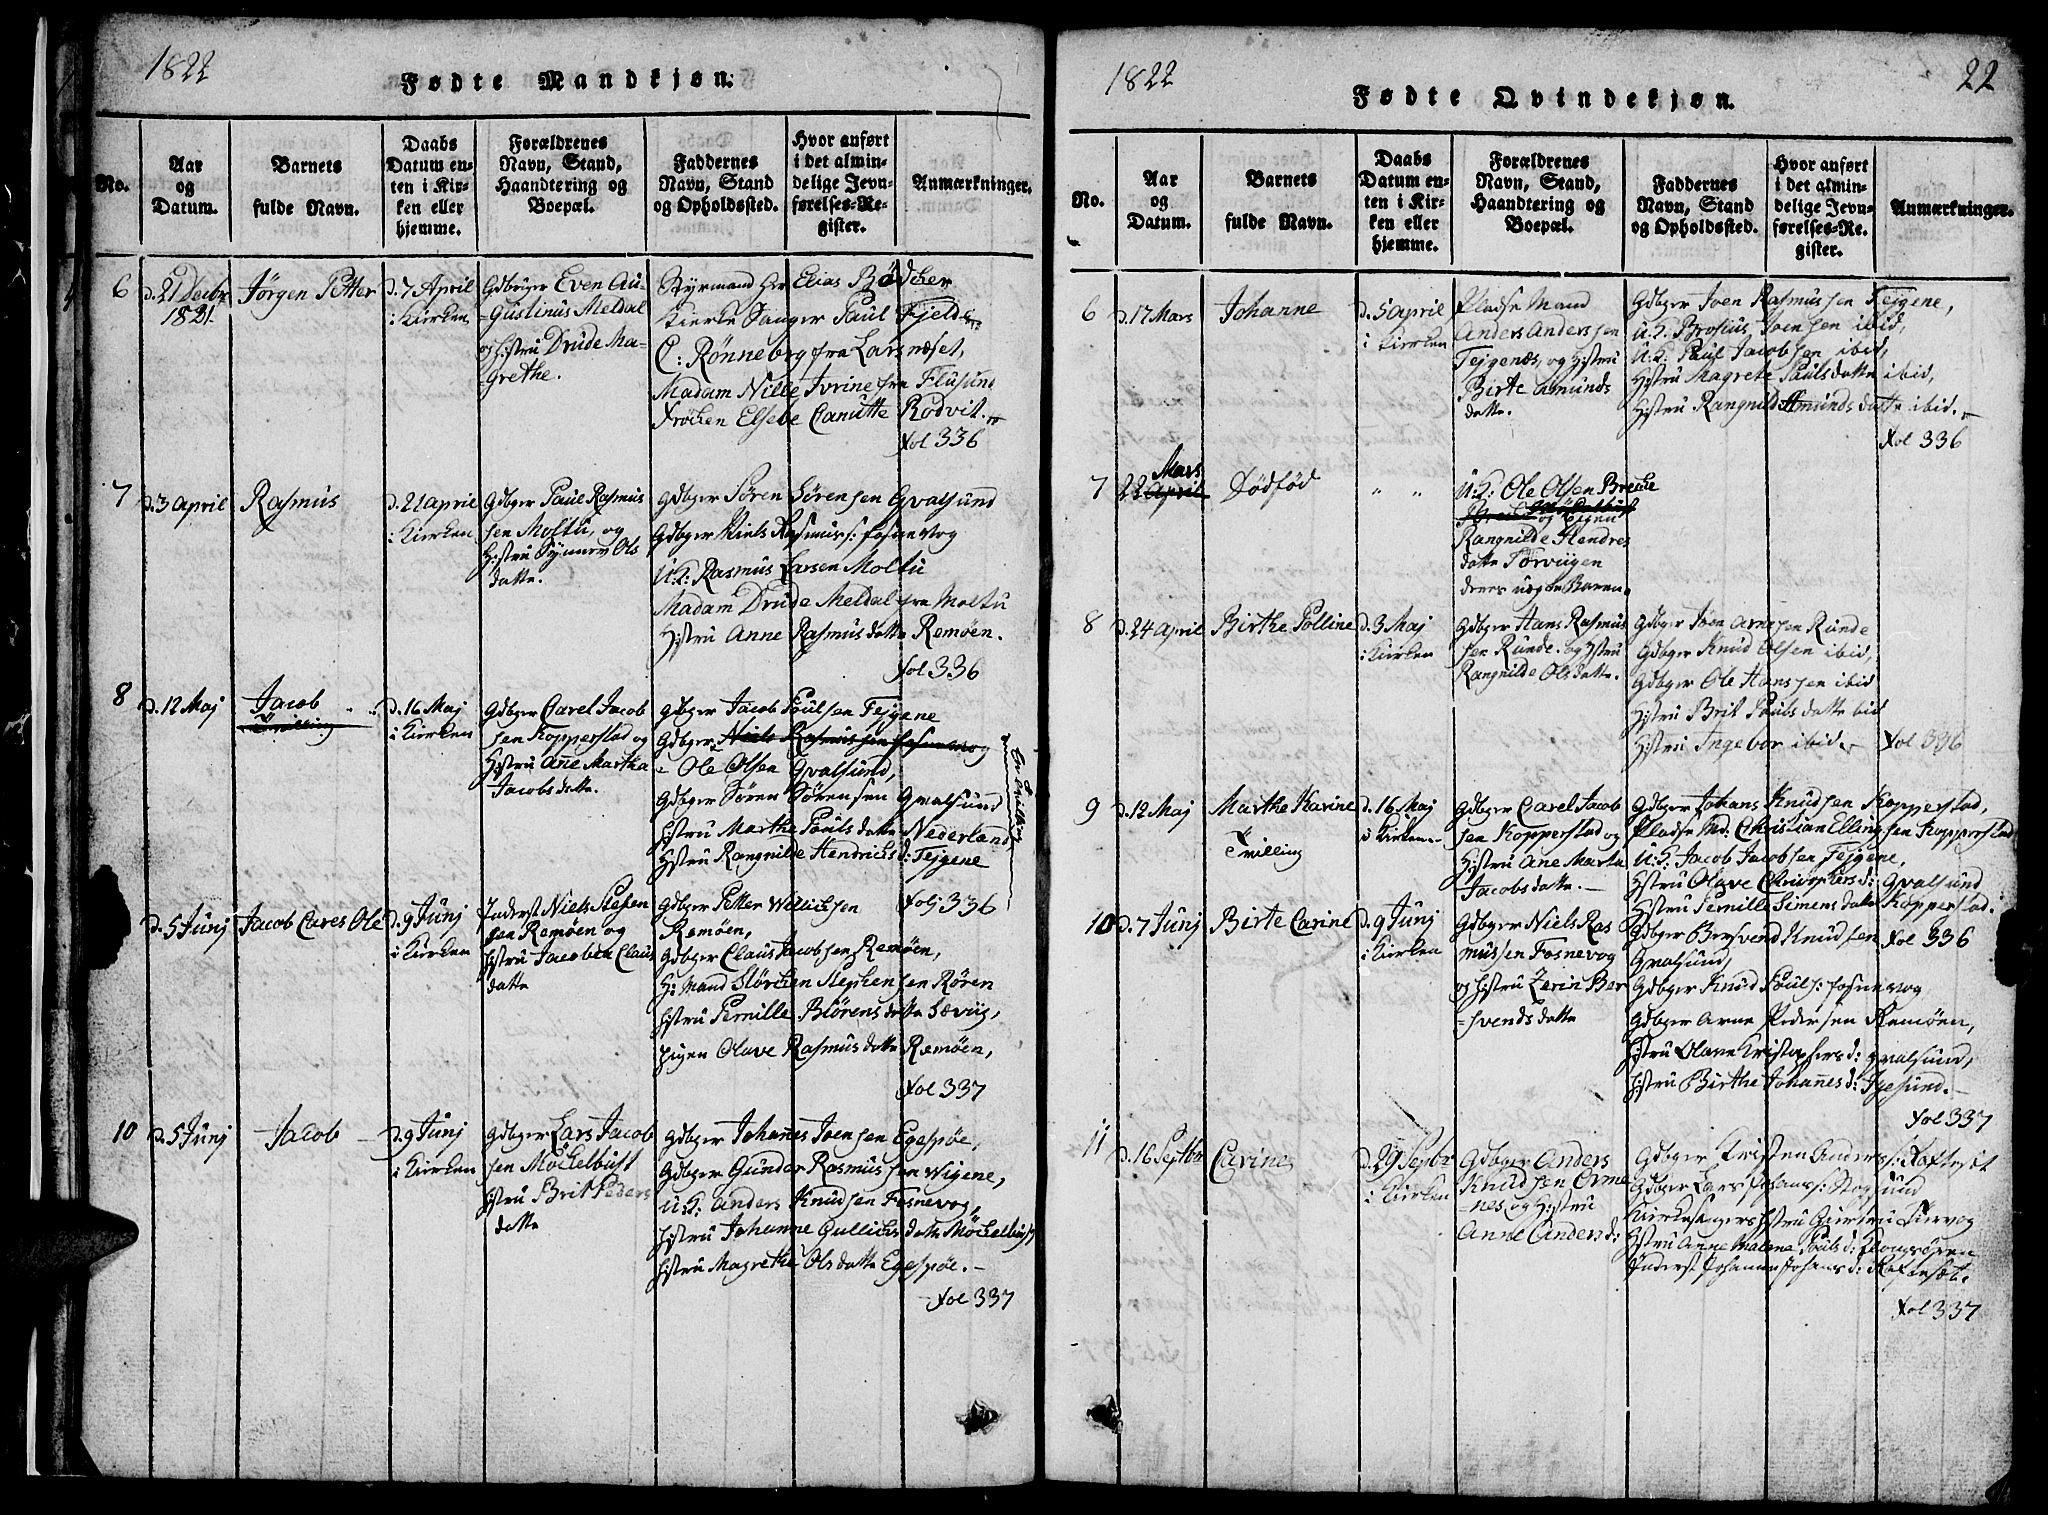 1822
Fødte Mandkjøn.
No.
Aar
og
Datum.
Barnets
fulde Navn.
Daabs
Datum en-
ten i Kir-
ken eller
hjemme.
Forældrenes
Navn, Stand,
Haandtering og
Boepæl.
Faddernes
Navn, Stand
og Opholdssted.
Hvor anført
i det almin-
delige Jevn-
førelses-Re-
gister.
Anmærkninger.
6
d. 21 Decbr
1821.
Jörgen Petter
d. 7 April
i Kirken
Gdbruger Even Au-
-gustinus Meldal
og Hstru Drude Ma-
-grethe.
Styrmand Hr Elias Bödcher
Kierke Sanger Paul Fjelde
C: Rönneberg fra Larsnæset,
Madam Nille Ivrine fra Flusund
Fröken Elsebe Canutte Rodvit.
Fol 336
7
d. 3 April
Rasmus
d. 21 april
i Kirken
Gdbger Paul Rasmus
sen Moltu, og
Hstru Synnev Ols
datte.
Gdbger Sören Sörensen Gvalsund
Gdbger Niels Rasmuss: Fosnevog
U:K: Rasmus Larsen Moltu
Madam Drude Meldal fra Moltu
Hstru Anne Rasmusdatte Remöen.
Fol 336
8
d. 12 Maj
Jacob
Tvilling
d. 16 Maj
i Kirken
Gdbger Carel Jacob
sen Kopperstad og
Hstru Anne Martha
Jacobsdatte.
Gdbger Jacob Poulsen Tejgene
Gdbger Niels Rasmussen Fosnevog
" Ole Olsen Gvalsund,
Gdbger Sören Sörensen Gvalsund
Hstru Marthe Poulsdatte Nederland
Hstru Rangnilde Hendricksd: Tejgene
Folj 336
En Tvilling
d. 5 Junj
Jacob Cares Ole
d. 9 Junj
i Kirken
Inderst Niels Stefen
sen Remöen og
Hstru Jacobea Claus
datte
Gdbger Petter Willichsen
Remöen,
Gdbger Claus Jacobsen Remöen,
H: Mand Störchen Stephensen Rören
Hstru Pernille Blörensdatte Sævig,
Pigen Olave Rasmusdatte Remöen,
Fol 337
10
d. 5 Junj
Jacob
d. 9 Junj
i Kirken
Gdbger Lars Jacob
sen Möckelbust
Hstru Brit Peders
datte
Gdbger Johannes Joensen Egespöe,
Gdbger Gunder Rasmussen Wigene,
U:K: Anders Knudsen Fosnevog,
Hstru Johanne Gullichsdatte Möckelbust
Hstru Magrethe Olsdatte Egespöe.
Fol 337
1822
Fødte Qvindekjøn.
22
No.
Aar
og
Datum.
Barnets
fulde Navn.
Daabs
Datum en-
ten i Kir-
ken eller
hjemme.
Forældrenes
Navn, Stand,
Haandtering og
Boepæl.
Faddernes
Navn, Stand
og Opholdssted.
Hvor anført
i det almin-
delige Jevn-
førelses-Re-
gister.
Anmærkninger.
6
d. 17 Mars
Johanne
d. 5 april
i Kirken
Pladse Mand
Anders Anderssen
Tejgenes, og Hstru
Birte Amunds
datte.
Gdbger Joen Rasmussen Tejgene,
U.K. Brosius Joensen ibid,
U.K. Paul Jacobsen ibid,
Hstru Magrete Paulsdatte ibid,
Hstru Rangnild Amundsdatte ibid.
Fol 336
7
Mars
22 April
Dödföd
" "
U:K: Ole Olsen Breche
og Pigen
Rangnilde Hendres
datte Torviigen
deres uægte Baren.
8
d. 24 April
Birthe Polline
d. 3 Maj
i Kirken
Gdbger Hans Rasmus
sen Runde. og Hstru
Rangnilde Olsdatte.
Gdbger Joen Arnesen Runde
Gdbger Knud Olsen ibid,
Gdbger Ole Hanssen ibid
Hstru Brit Poulsdatte ibid
Hstru Ingebor ibid.
Fol 336
9
d. 12 Maj
Marthe Karine
Tvilling
d. 16 Maj
i Kirken
Gdbger Carel Jacob
sen Kopperstad og
Hstru Ane Marta
Jacobsdatte.
Gdbger Johans Knudsen Kopperstad,
Pladse Md. Christian Ellingsen Kopperstad
U:K: Jacob Jacobsen Tejgene,
Hstru Olave Christophersd: Gvalsund
Hstru Pernille Simensdatte Kopperstad.
Fol 336
10
d. 7 Junj
Birte Carine
d. 9 Junj
i Kirken
Gdbger Niels Ras
mussen Fosnevog
og Hstru Zerin Ber
=svendsdatte
Gdbger Bersvend Knudsen
Gvalsund,
Gdbger Knud Pouls: Fosnevog
Gdbger Arne Pedersen Remöen,
Hstru Olave Kristophersd: Gvalsund,
Hstru Birthe Johannesd: Igesund.
Fol 337
11
d. 16 Septbr
Carine
d. 29 Septbr
i Kirken
Gdbger Anders
Knudsen Orme
=nes og Hstru
Anne Andersd:
Gdbger Kristen Anders: Raftesæt
Gdbger Lars Johans: Stogsund
Kirkesangers Hstru Giertru Tiervog
Hstru Anne Malene Poulsd:
Inderst Johanne Johansd: Raftesæt.
Fol 337